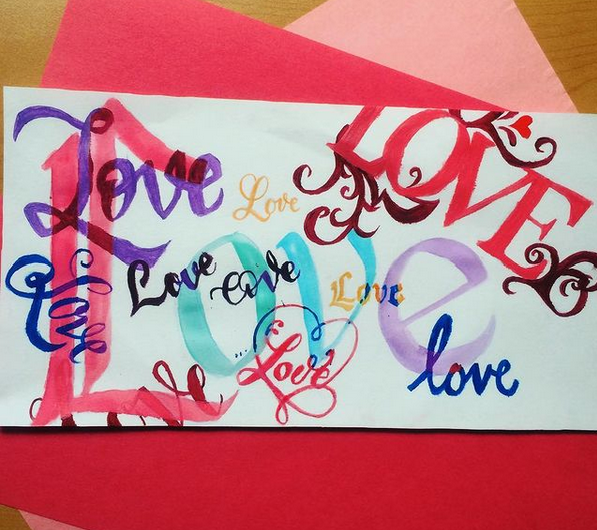 Love
Love
LOVE
Love
Love
Love
love
Love
Love
love
Love